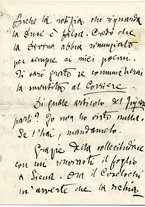 Anche la notizia che riguarda
la Duse è falsa. Credo che
la donna abbia rinunziato
per sempre ai miei poemi.
Ti sarò grato se comunicherai
la smentita al Corriere
Di quale articolo del Figaro
parli? Io non ho visto nulla.
Se l'hai, mandamelo.
Grazie della sollecitudine
con cui rimandasti il foglio
a Siena. Ora il
m'avverte che la